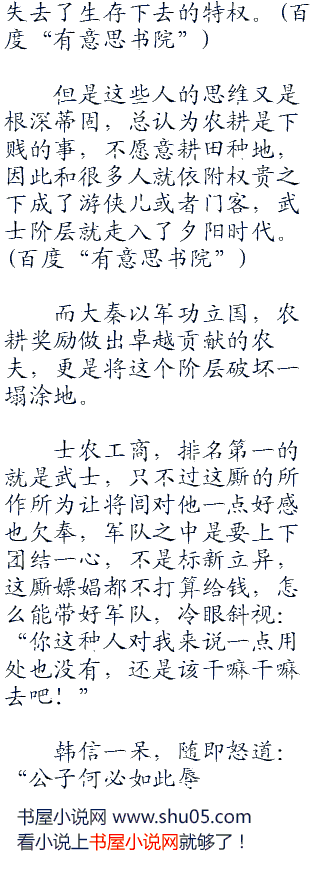 失去了生存下去的特权。(百
度“有意思书院”)
但是这些人的思维又是
根深蒂固，总认为农耕是下
贱的事，不愿意耕田种地，
因此和很多人就依附权贵之
下成了游侠儿或者门客，武
士阶层就走入了夕阳时代。
(百度“有意思书院”)
而大秦以军功立国，农
耕奖励做出卓越贡献的农
夫，更是将这个阶层破坏一
塌涂地。
士农工商，排名第一的
就是武士，只不过这厮的所
作所为让将闾对他一点好感
也欠奉，军队之中是要上下
团结一心，不是标新立异，
这厮嫖娼都不打算给钱，怎
么能带好军队，冷眼斜视：
“你这种人对我来说一点用
处也没有，还是该干嘛干嘛
去吧！”
韩信一呆，随即怒道：
“公子何必如此辱
书屋小说网 www.shu05.com
看小说上书屋小说网就够了！